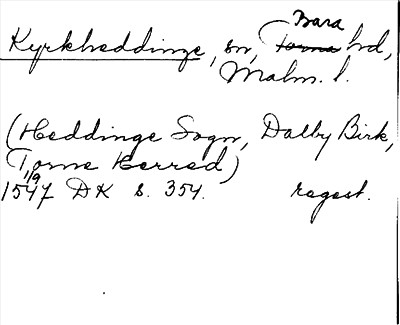 Kyrkheddinge, sn, Bara hd,
Malm. l.
(Heddinge Sogn, Dalby Birk,
Torne Herred)
1/9
1547 DK s. 354. regest.